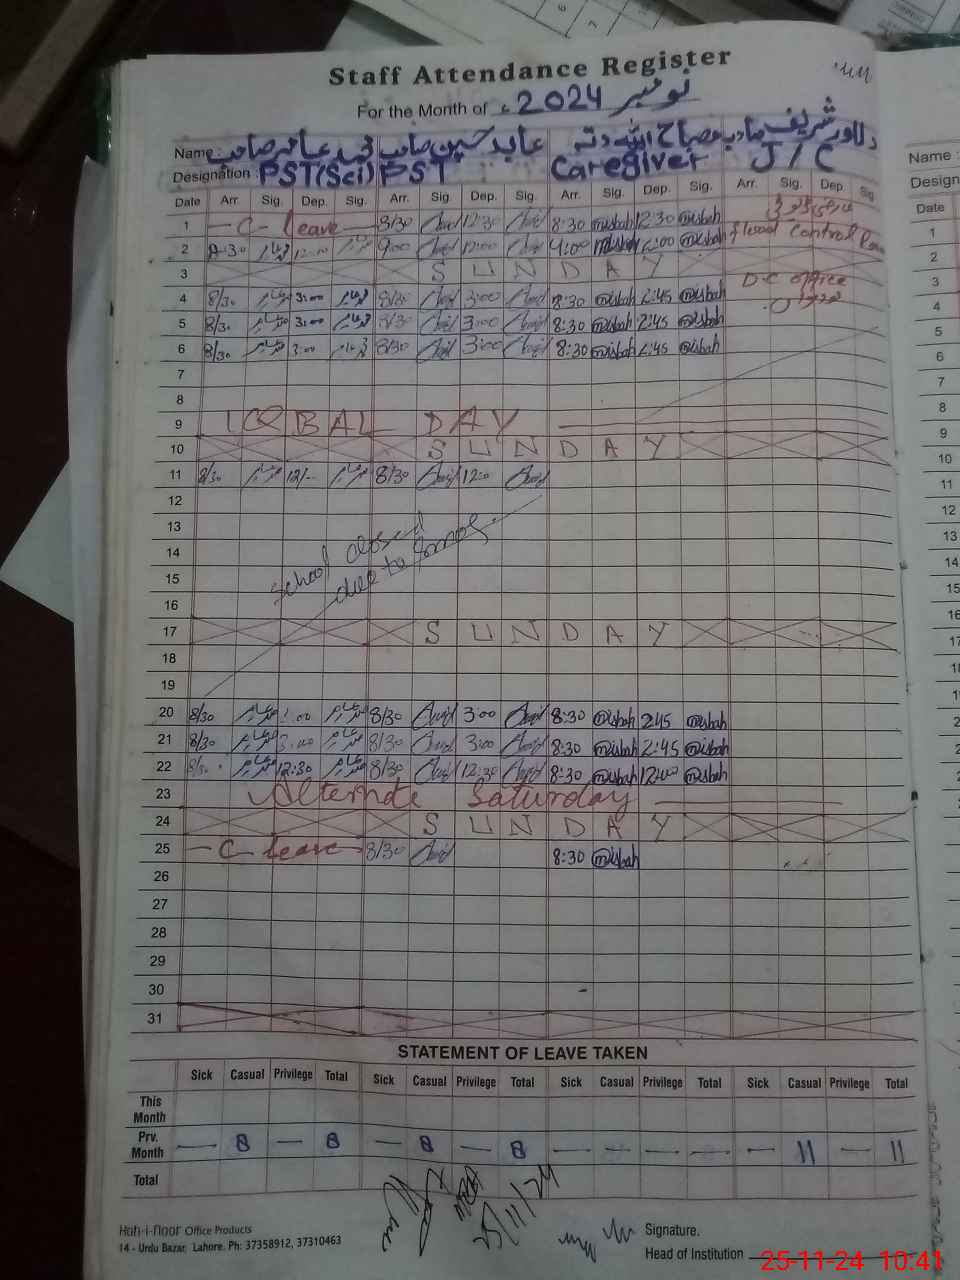 Staff Attendance Register
For the Month of نومبر 2024
Name: محمد عامر صاحب عابد حسین صاحب مصباح اللہ دتہ دلاور شریف صاحب
Designation: PST(Sci) PST Caregiver J/C
Date Arr. Sig. Dep. Sig. Arr. Sig. Dep. Sig. Arr. Sig. Dep. Sig. Arr. Sig. Dep. Sig.
1 — C - leave — 8/30 12:30 8:30 misbah 12:30 misbah
2 8-30 9:00 12:00 misbah misbah flood Control
3 SUNDAY D.C office
4 8/30 3:00 8/30 3:00 8:30 misbah 2:45 misbah
5 8/30 3:00 8/30 3:00 8:30 misbah 2:45 misbah
6 8/30 3:00 8/30 3:00 8:30 misbah 2:45 misbah
7
8
9 IQBAL DAY
10 SUNDAY
11 8/30 12/- 8/30 12:0
12
13 School closed
14 due to smog.
15
16
17 SUNDAY
18
19
20 8/30 3:00 8/30 3:00 8:30 misbah 2:45 misbah
21 8/30 3:00 8/30 3:00 8:30 misbah 2:45 misbah
22 8/30 12:30 8/30 12:30 8:30 misbah 12:00 misbah
23 Alternate Saturday
24 SUNDAY
25 — C - leave — 8/30 8:30 misbah
26
27
28
29
30
31
STATEMENT OF LEAVE TAKEN
Sick Casual Privilege Total Sick Casual Privilege Total Sick Casual Privilege Total Sick Casual Privilege Total
This Month
Prv. Month — 8 — 8 — 8 — 8 — — — — — 11 — 11
Total
25/11/24
Koh-i-Noor Office Products
14 - Urdu Bazar, Lahore. Ph: 37358912, 37310463
Signature.
Head of Institution
25-11-24 10:41
Name :
Design
Date
1
2
3
4
5
6
7
8
9
10
11
12
13
14
15
16
17